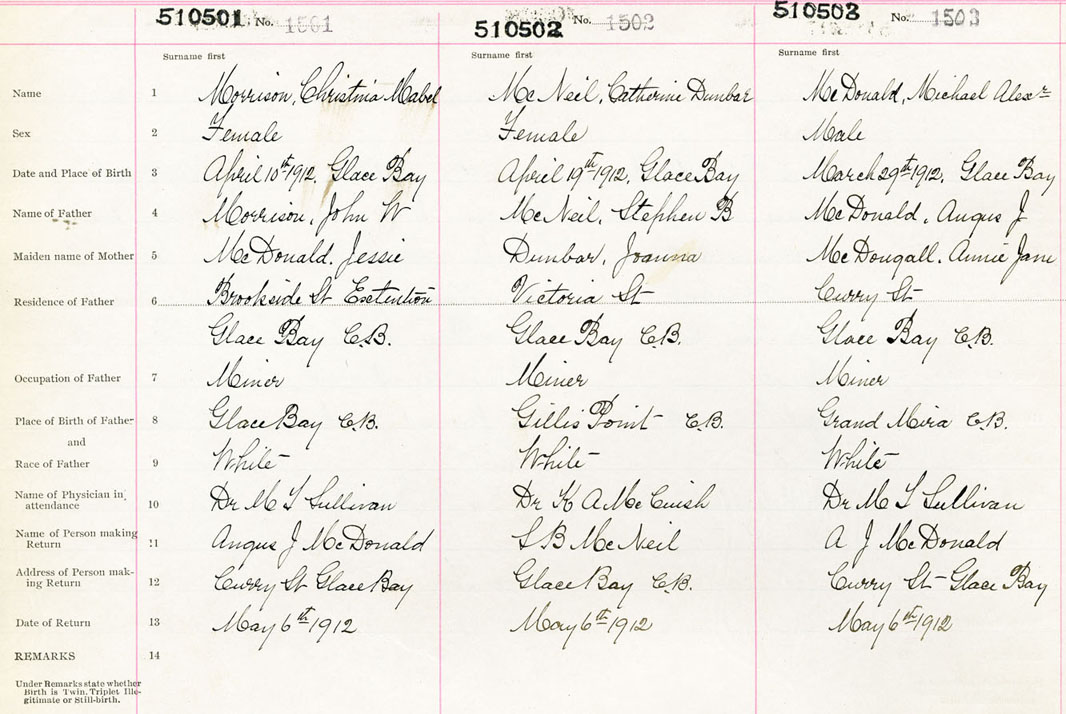 510501 No. 1501 510502 No. 1502 510503 No. 1503
Surname first Surname first Surname first
Name 1 Morrison, Christina Mabel McNeil, Catherine Dunbar McDonald, Michael Alexr
Sex 2 Female Female Male
Date and Place of Birth 3 April 10th 1912, Glace Bay April 19th 1912, Glace Bay March 29th 1912, Glace Bay
Name of Father 4 Morrison, John W McNeil, Stephen B McDonald, Angus J
Maiden name of Mother 5 McDonald, Jessie Dunbar, Joanna McDougall, Annie Jane
Residence of Father 6 Brookside St Exetention Victoria St Curry St
Glace Bay C.B. Glace Bay C.B. Glace Bay C.B.
Occupation of Father 7 Miner Miner Miner
Place of Birth of Father 8 Glace Bay C.B. Gillis Point C.B. Grand Mira C.B.
and
Race of Father 9 White White White
Name of Physician in
attendance 10 Dr M T Sullivan Dr K A McCuish Dr M T Sullivan
Name of Person making
Return 11 Angus J McDonald S B McNeil A J McDonald
Address of Person mak-
ing Return 12 Curry St Glace Bay Glace Bay C.B. Curry St Glace Bay
Date of Return 13 May 6th 1912 May 6th 1912 May 6th 1912
REMARKS 14
Under Remarks state whether
Birth is Twin, Triplet Ille-
gitimate or Still-birth.